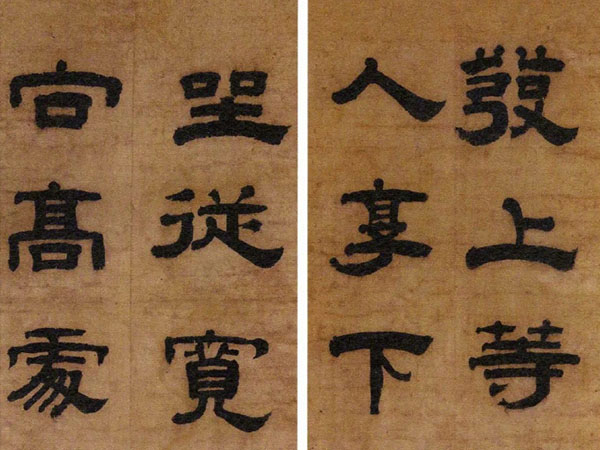 發上等
人享下
向高處
坐從寬